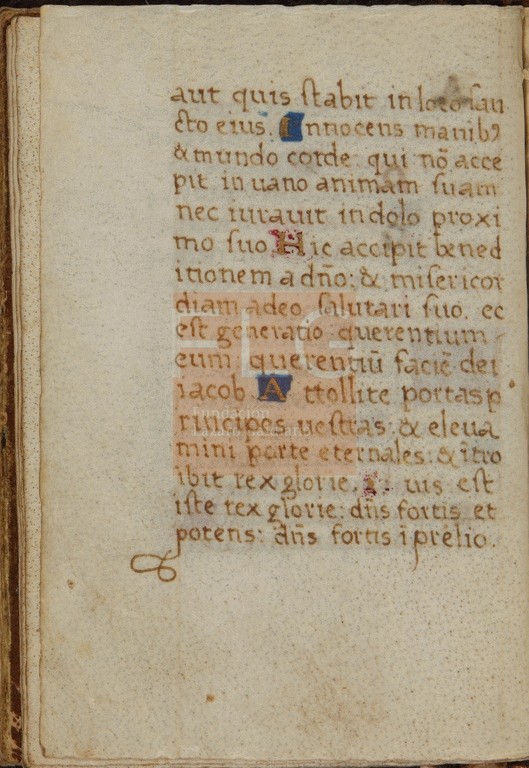 aut quis stabit in loco san
cto eius. Innocens manibꝰ
& mundo corde: qui nō acce
pit in uano animam suam
nec iurauit in dolo proxi
mo suo. Hic accipit bened
itionem a dño: & misericor
diam a deo salutari suo. ec
est generatio querentium
eum: querentiū faciē dei
iacob. Attollite portas p
rincipes uestras: & eleua
mini porte eternales: & ītro
ibit rex glorie. uis est
iste rex glorie: dñs fortis et
potens: dñs fortis ī prelio.
FLG
Fundación
Lázaro Galdiano